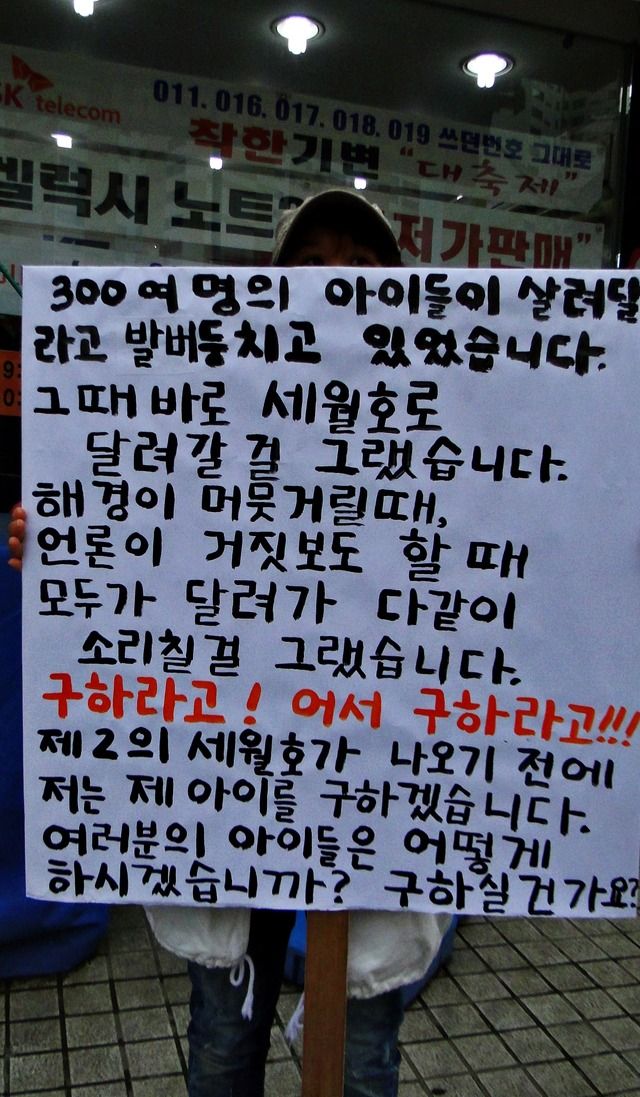 SK telecom
011. 016. 017. 018. 019 쓰던번호 그대로
착한기변 "대축제"
갤럭시 노트
저가판매"
300여 명의 아이들이 살려달
라고 발버둥치고 있었습니다.
그때 바로 세월호로
달려갈 걸 그랬습니다.
해경이 머뭇거릴때,
언론이 거짓보도 할 때
모두가 달려가 다같이
소리칠걸 그랬습니다.
구하라고! 어서 구하라고!!!
제2의 세월호가 나오기 전에
저는 제 아이를 구하겠습니다.
여러분의 아이들은 어떻게
하시겠습니까? 구하실건가요?